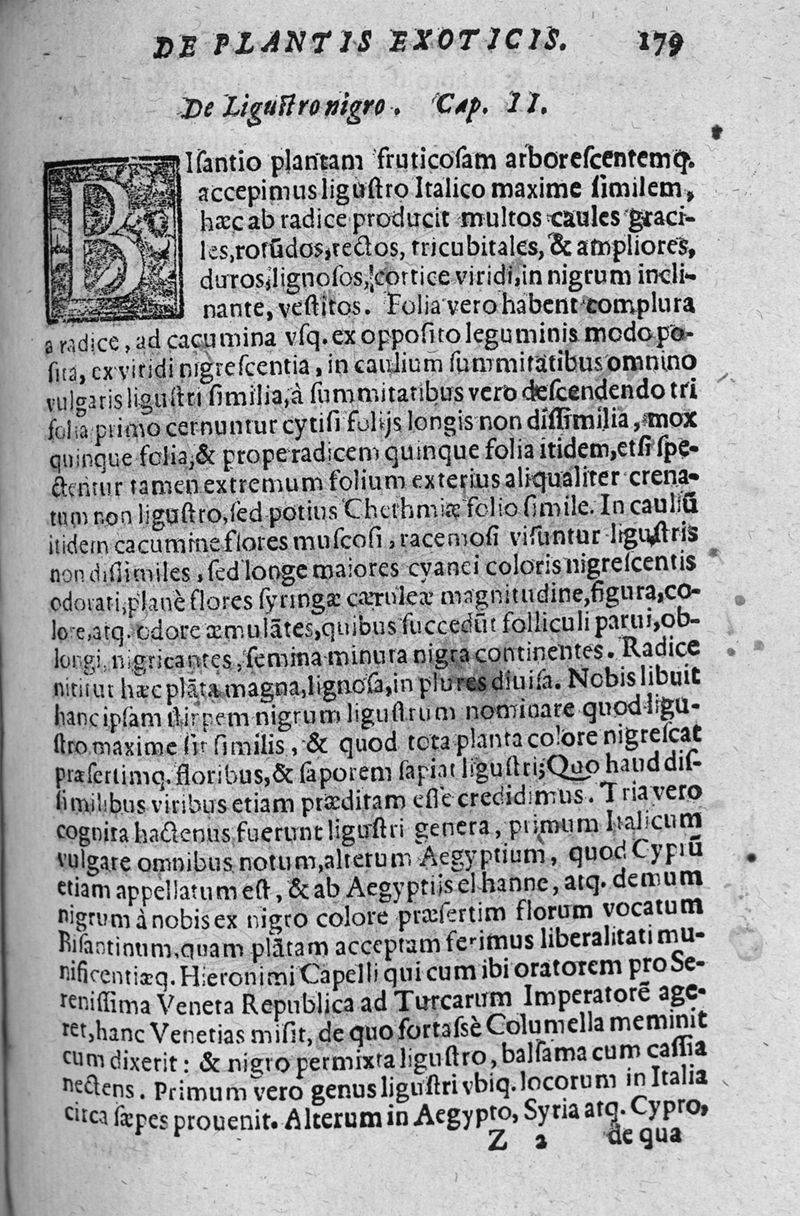 DE PLANTIS EXOTICIS. 179
De Liguſtro nigro. Cap. II.
BIſantio plantam fruticoſam arboreſcentemq́.
accepimus liguſtro Italico maxime ſimilem,
hæc ab radice producit multos caules graci-
les, rotũdos, rectos, tricubitales, & ampliores,
duros, lignoſos, cortice viridi, in nigrum incli-
nante, veſtitos. Folia vero habent complura
a radice, ad cacumina vſq. ex oppoſito leguminis modo po-
ſita, ex viridi nigreſcentia, in caulium ſummitatibus omnino
vulgaris liguſtri ſimilia, à ſummitatibus vero deſcendendo tri
folia primo cernuntur cytiſi folijs longis non diſſimilia, mox
quinque folia, & prope radicem quinque folia itidem, etſi ſpe-
ctentur tamen extremum folium exterius aliqualiter crena-
tum non liguſtro, ſed potius Chethmiæ folio ſimile. In cauliũ
itidem cacumine flores muſcoſi, racemoſi viſuntur liguſtris
non diſſimiles, ſed longe maiores cyanei coloris nigreſcentis
odorati, planè flores ſyringæ cæruleæ magnitudine, figura, co-
lore, atq. odore æmulãtes, quibus ſuccedũt folliculi parui, ob-
longi, nigricantes, ſemina minuta nigra continentes. Radice
nititur hæc plãta magna, lignoſa, in plures diuiſa. Nobis libuit
hanc ipſam ſtirpem nigrum liguſtrum nominare quod ligu-
ſtro maxime ſit ſimilis, & quod tota planta colore nigreſcat
præſertimq. floribus, & ſaporem ſapiat liguſtri; Quo haud diſ-
ſimilibus viribus etiam præditam eſſe credidimus. Tria vero
cognita hactenus fuerunt liguſtri genera, primum Italicum
vulgare omnibus notum, alterum Aegyptium, quod Cypiũ
etiam appellatum eſt, & ab Aegyptijs el hanne, atq. demum
nigrum à nobis ex nigro colore præſertim florum vocatum
Biſantinum, quam plãtam acceptam ferimus liberalitati mu-
nificentiæq. Hieronimi Capelli qui cum ibi oratorem pro Se-
reniſſima Veneta Republica ad Turcarum Imperatorẽ age-
ret, hanc Venetias miſit, de quo fortaſsè Columella meminit
cum dixerit: & nigro permixta liguſtro, balſama cum caſſia
nectens. Primum vero genus liguſtri vbiq. locorum in Italia
circa ſæpes prouenit. Alterum in Aegypto, Syria atq. Cypro,
Z 2 de qua